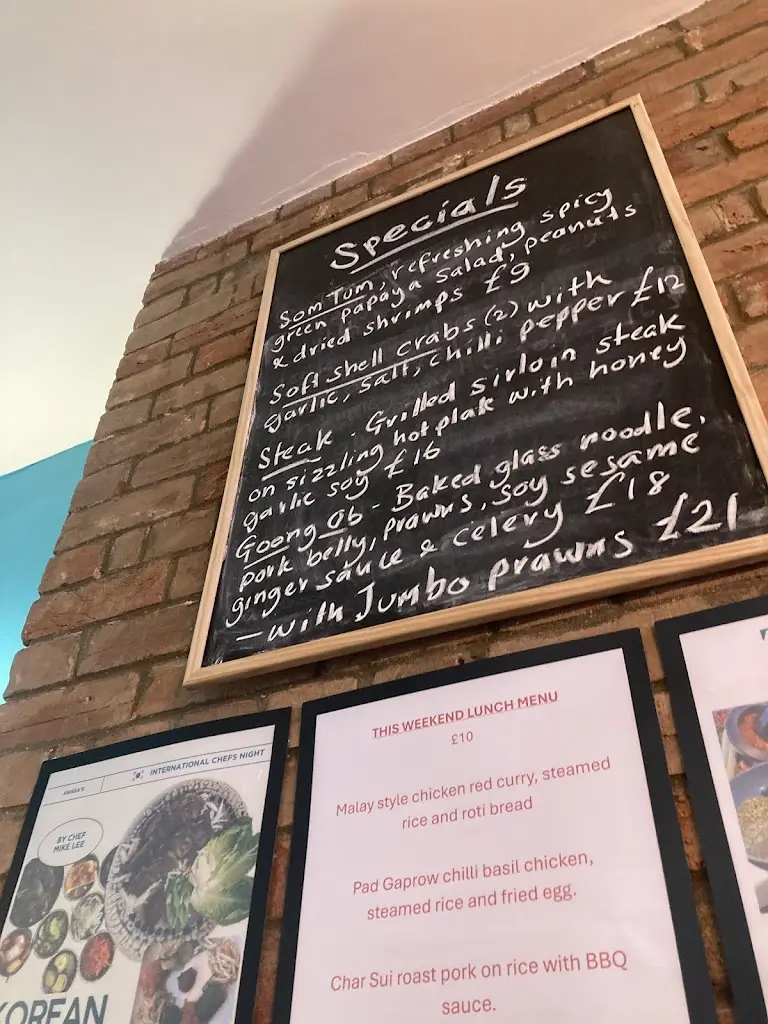 Specials
Som Tum, refreshing spicy
green papaya salad, peanuts
& dried shrimps £9
Soft shell crabs (2) with
garlic, salt, chilli pepper £12
Steak - Grilled sirloin steak
on sizzling hot plate with honey
garlic soy £16
Goong ob - Baked glass noodle,
pork belly, prawns, soy sesame
ginger sauce & celery £18
- with Jumbo prawns £21
INTERNATIONAL CHEFS NIGHT
BY CHEF
MIKE LEE
KOREAN
THIS WEEKEND LUNCH MENU
£10
Malay style chicken red curry, steamed
rice and roti bread
Pad Gaprow chilli basil chicken,
steamed rice and fried egg.
Char Sui roast pork on rice with BBQ
sauce.